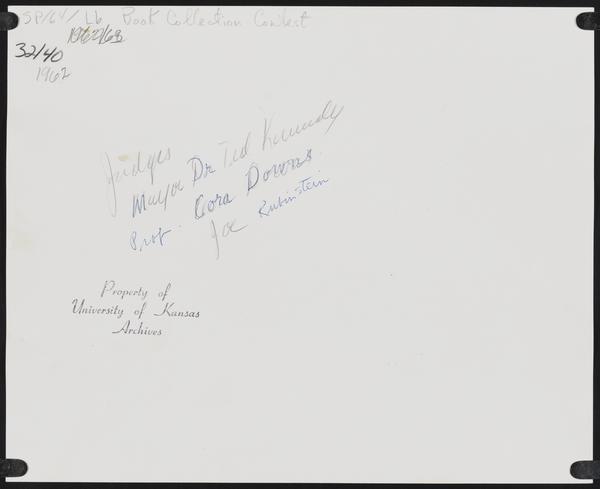 SP/64/ Lb Book Collection Contest
1962/63
32/40
1962
Judges
Mayor Dr Ted Kennedy
Prof. Cora Downs
Joe Rubinstein
Property of
University of Kansas
Archives